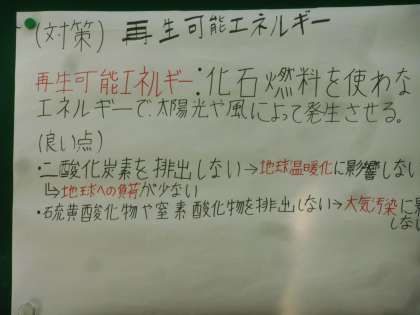 (対策) 再生可能エネルギー
再生可能エネルギー:化石燃料を使わな
エネルギーで、太陽光や風によって発生させる。
(良い点)
・二酸化炭素を排出しない→地球温暖化に影響しない
↳地球への負荷が少ない
・石硫黄酸化物や窒素酸化物を排出しない→大気汚染に影
しない